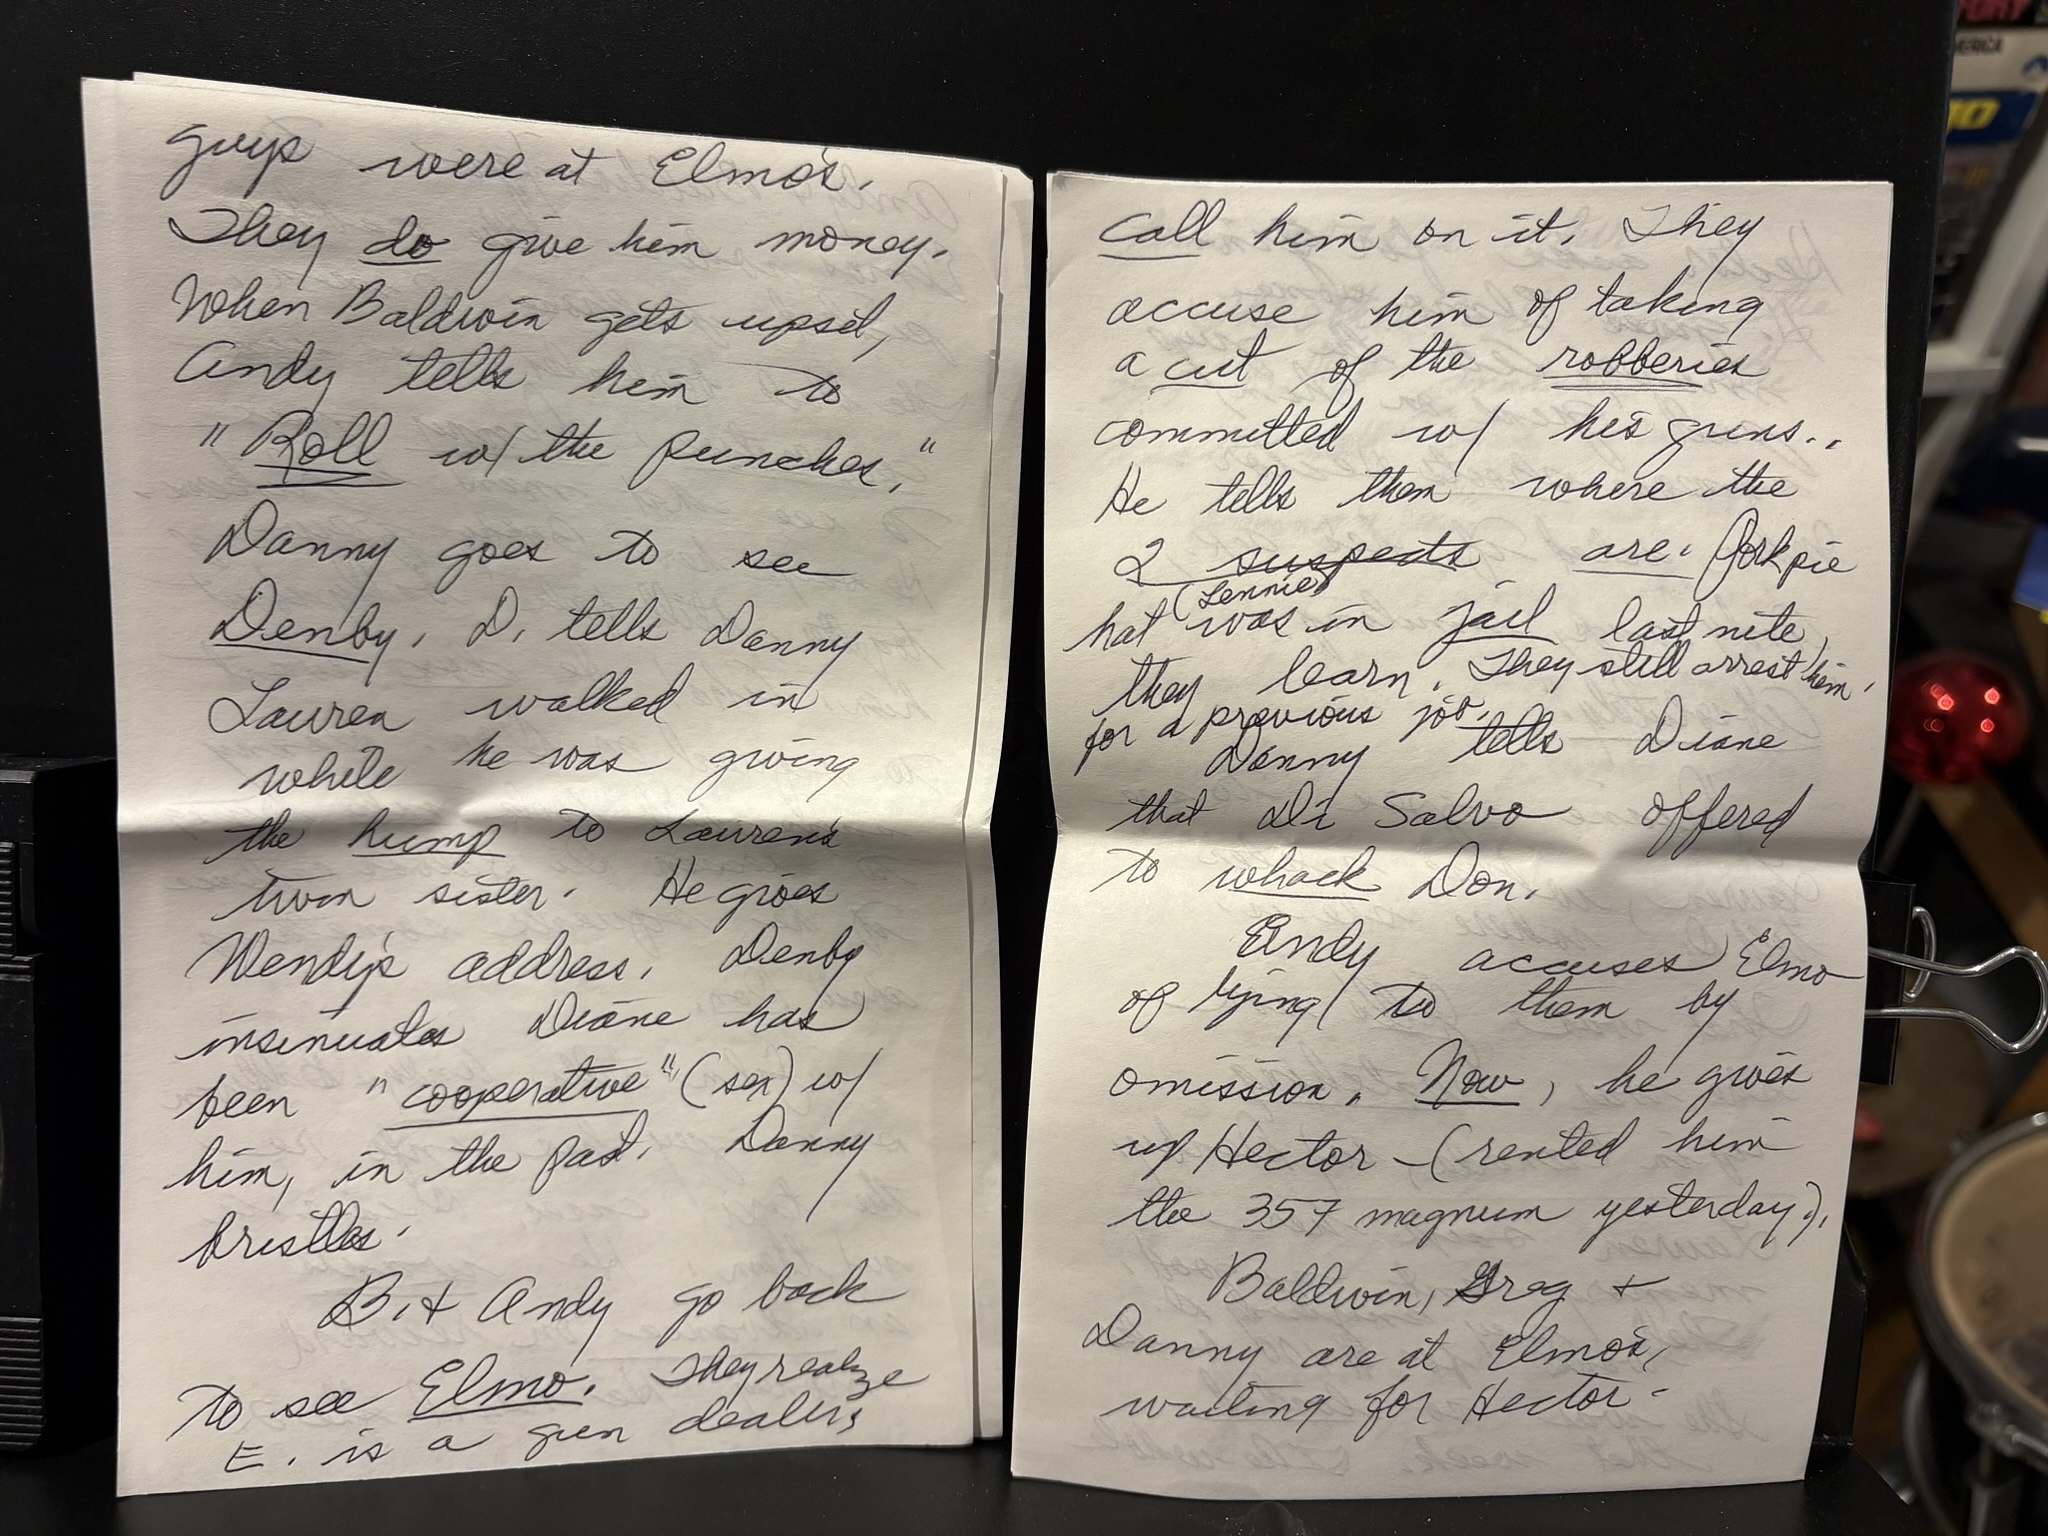 guys were at Elmo's.
They do give him money.
When Baldwin gets upset,
Andy tells him to
"Roll w/ the punches."
Danny goes to see
Denby. D. tells Danny
Lauren walked in
while he was giving
the hump to Lauren's
twin sister. He gives
Wendy's address. Denby
insinuates Diane has
been "cooperative" (sex) w/
him, in the past. Danny
bristles.
B. + Andy go back
to see Elmo. They realize
E. is a gun dealer,
call him on it. They
accuse him of taking
a cut of the robberies
committed w/ his guns..
He tells them where the
2 suspects are. Porkpie
(Lennie)
hat was in jail last nite,
they learn. They still arrest him
for a previous job.
Danny tells Diane
that Di Salvo offered
to whack Don.
Andy accuses Elmo
of lying to them by
omission. Now, he gives
up Hector - (rented him
the 357 magnum yesterday.).
Baldwin, Greg +
Danny are at Elmo's,
waiting for Hector -